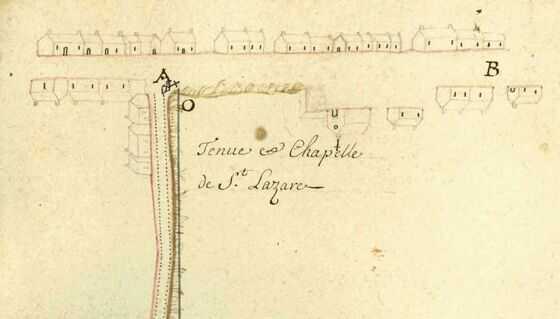 A
B
O
Tenue & Chapelle
de S.t Lazare